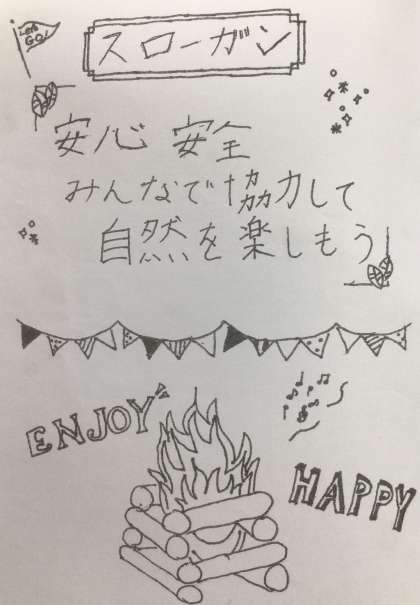 Let's
GO!
スローガン
安心 安全
みんなで協力して
自然を楽しもう
ENJOY
HAPPY